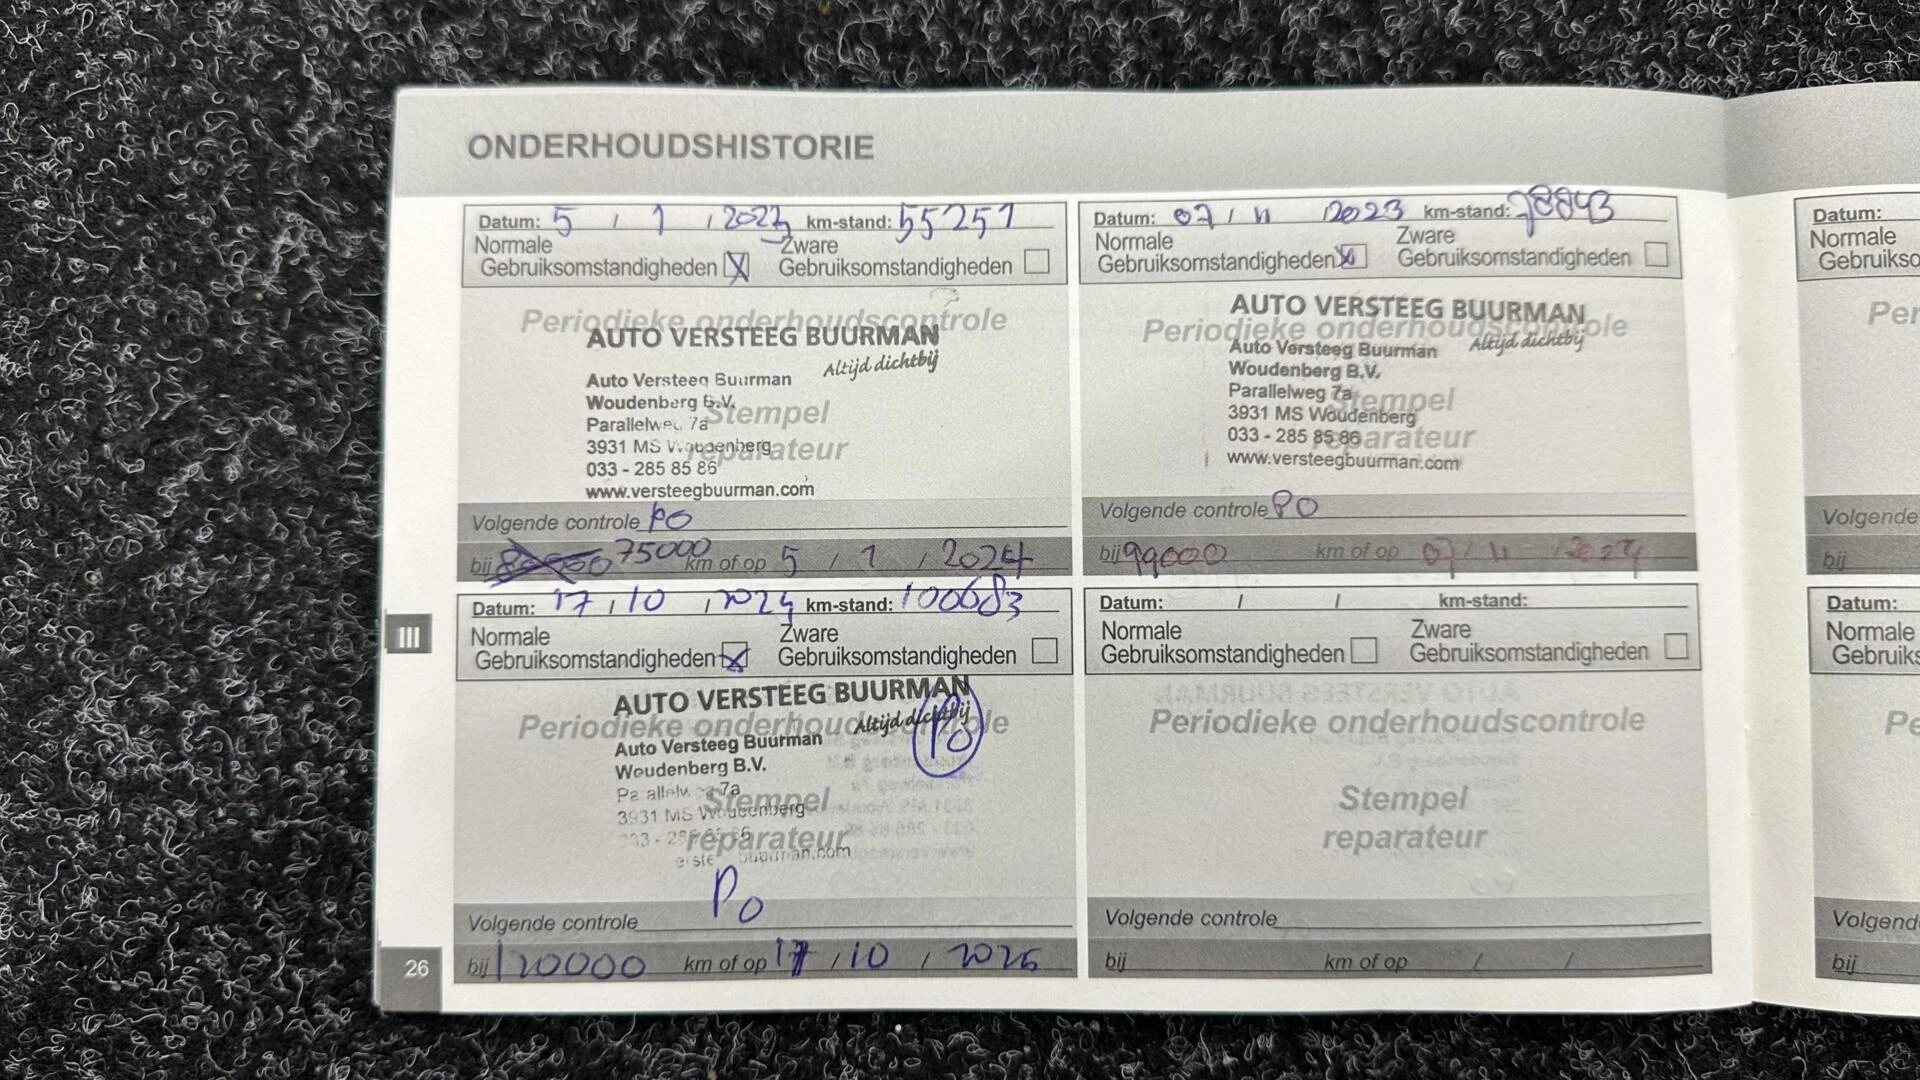 ONDERHOUDSHISTORIE
Datum: 5 / 1 / 2023 km-stand: 55251
Normale Gebruiksomstandigheden X Zware Gebruiksomstandigheden
Periodieke onderhoudscontrole
AUTO VERSTEEG BUURMAN
Altijd dichtbij
Auto Versteeg Buurman
Woudenberg B.V.
Parallelweg 7a
Stempel
3931 MS Woudenberg
reparateur
033 - 285 85 86
www.versteegbuurman.com
Volgende controle PO
bij 75000 km of op 5 / 1 / 2024
Datum: 07 / 11 / 2023 km-stand: 78843
Normale Gebruiksomstandigheden X Zware Gebruiksomstandigheden
AUTO VERSTEEG BUURMAN
Periodieke onderhoudscontrole
Altijd dichtbij
Auto Versteeg Buurman
Woudenberg B.V.
Parallelweg 7a
Stempel
3931 MS Woudenberg
033 - 285 85 86
reparateur
www.versteegbuurman.com
Volgende controle PO
bij 99000 km of op 07 / 11 / 2024
III
Datum: 17 / 10 / 2024 km-stand: 100683
Normale Gebruiksomstandigheden X Zware Gebruiksomstandigheden
AUTO VERSTEEG BUURMAN
Periodieke onderhoudscontrole
Altijd dichtbij
PO
Auto Versteeg Buurman
Woudenberg B.V.
Parallelweg 7a
Stempel
3931 MS Woudenberg
reparateur
Volgende controle PO
bij 120000 km of op 17 / 10 / 2025
Datum: / / km-stand:
Normale Gebruiksomstandigheden Zware Gebruiksomstandigheden
Periodieke onderhoudscontrole
Stempel
reparateur
Volgende controle
bij km of op / /
26
Datum:
Normale
Gebruikso
Per
Volgende
bij
Datum:
Normale
Gebruiks
Pe
Volgend
bij